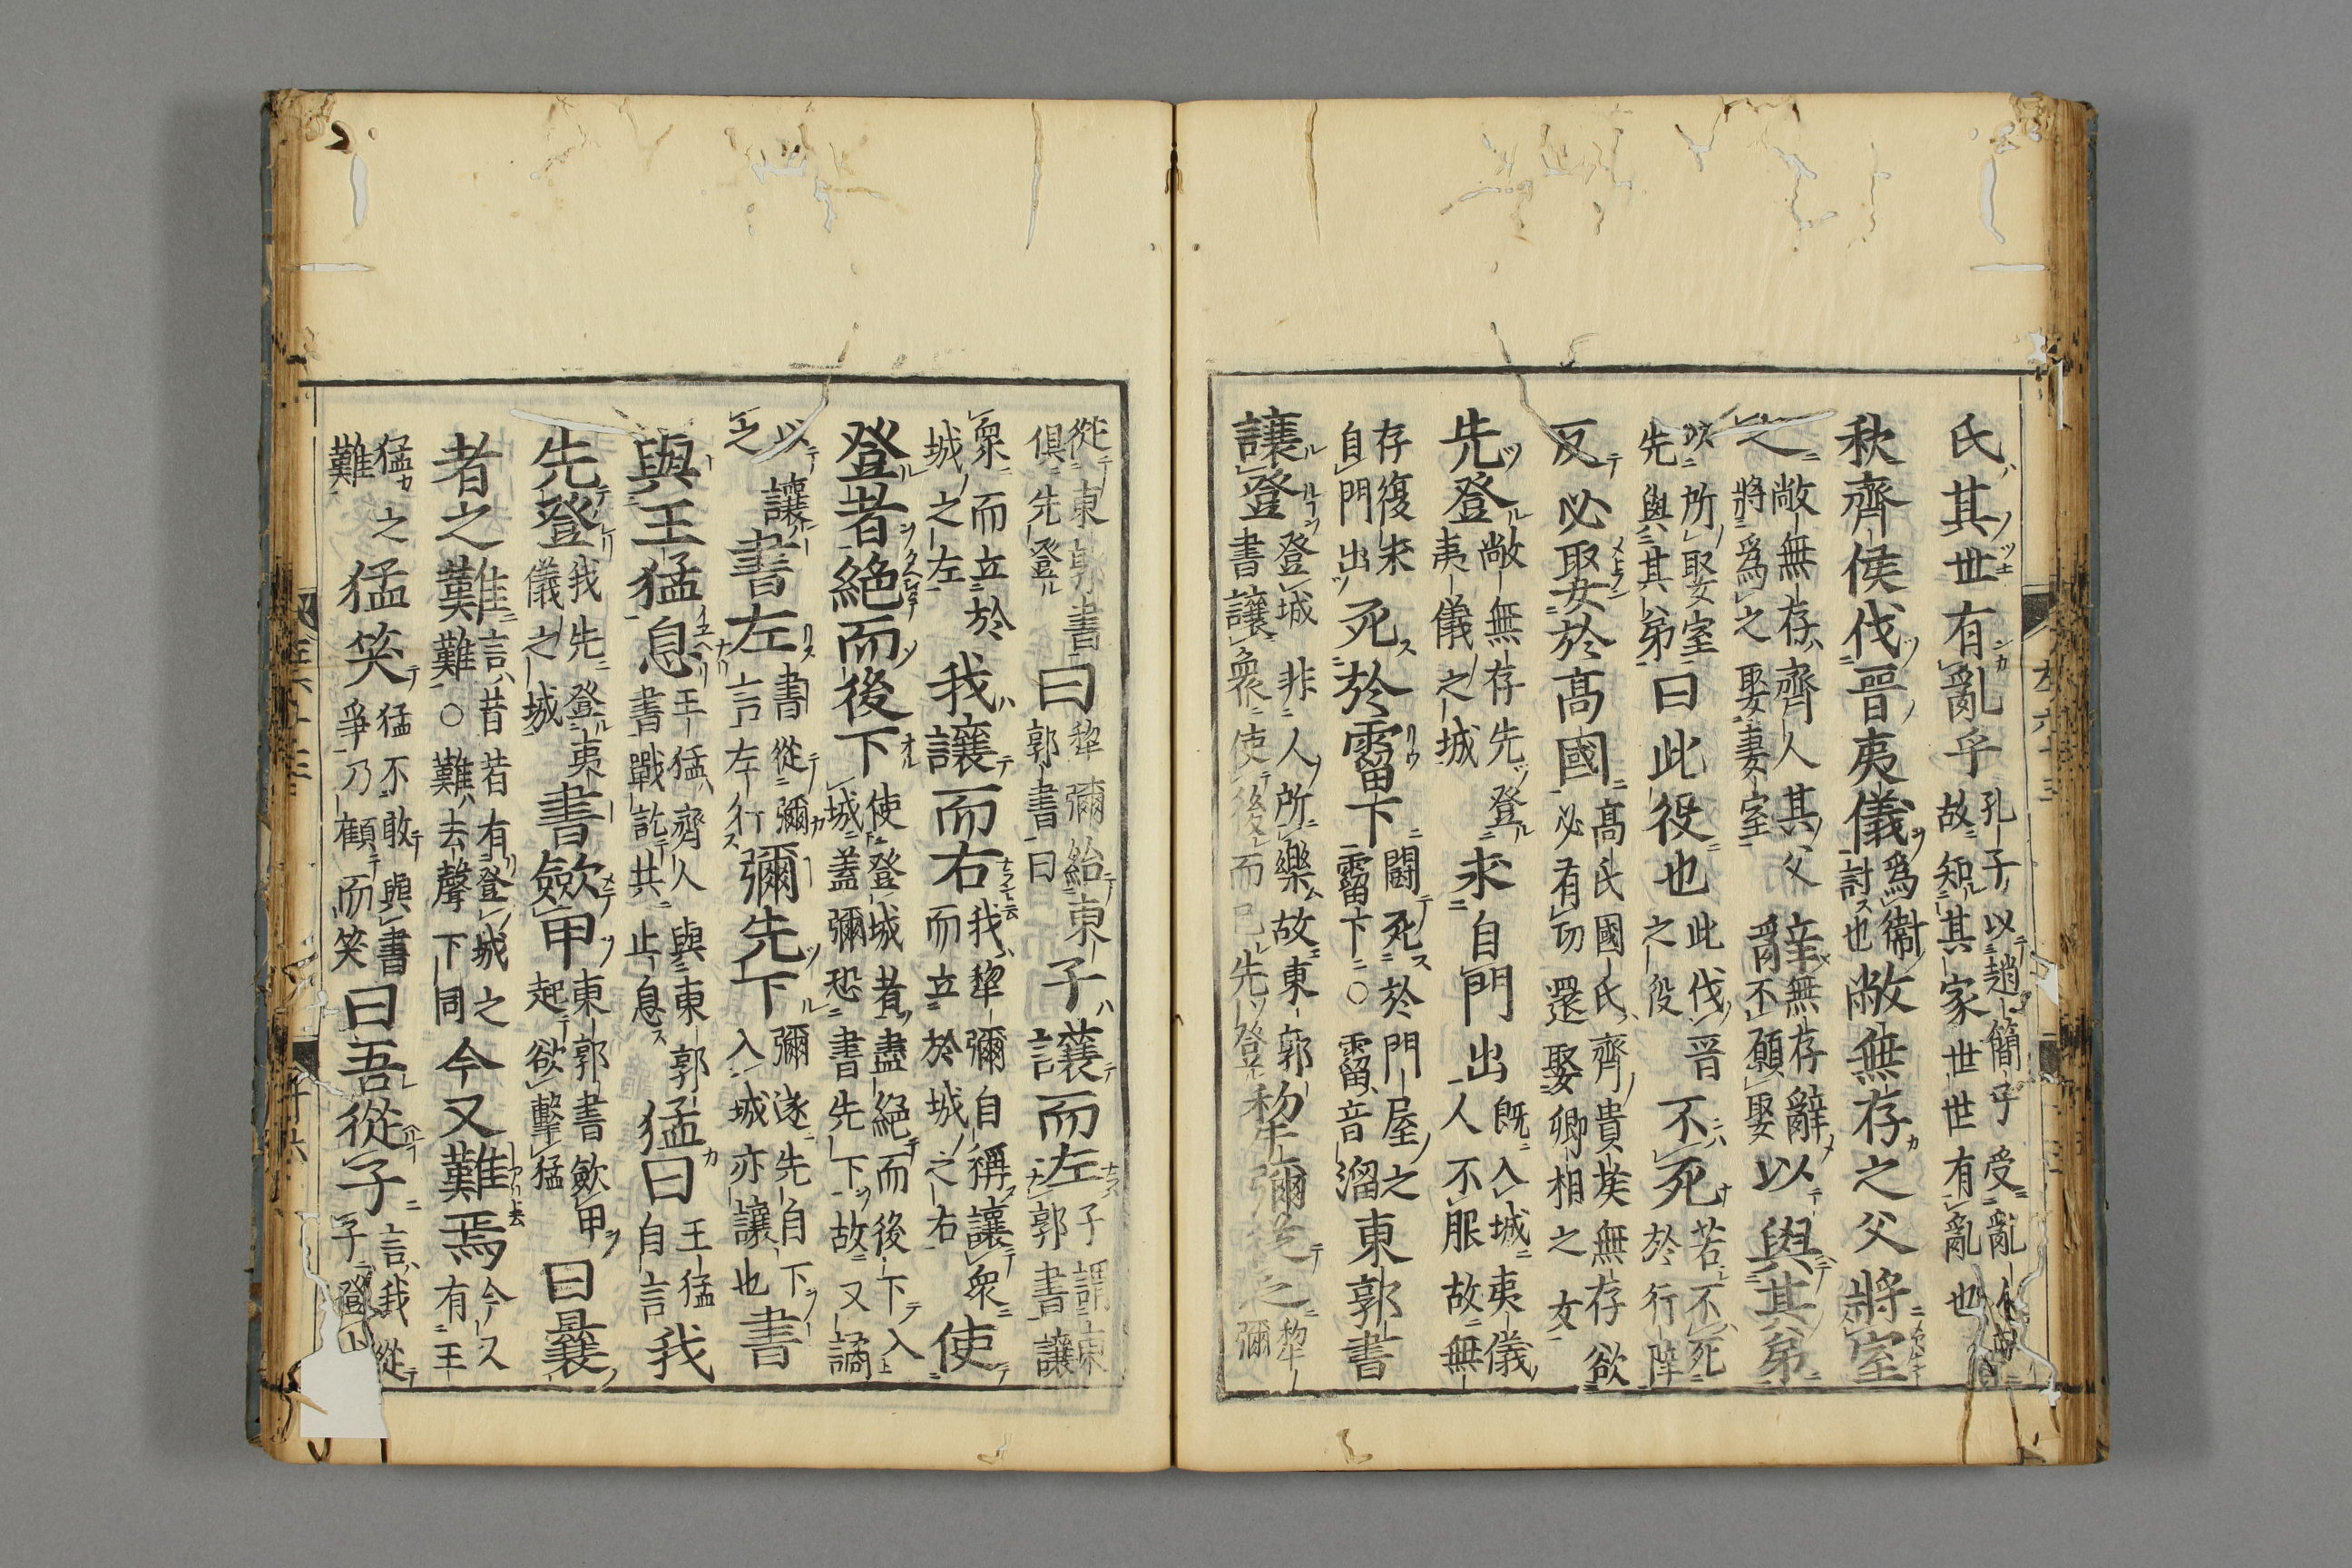 氏其世有亂乎孔子以趙簡子受亂故知其家世世有亂也
秋齊侯伐晉夷儀爲衞討也敝無存之父將室
之敝無存齊人其父將爲之娶妻室辭無存辭不願娶以與其弟
以所娶室先與其弟曰此役也此伐晉之役不死若不死於行陣
反必娶於高國高氏國氏齊貴族無存欲必有功還娶卿相之女
先登敝無存先登夷儀之城求自門出既入城夷儀人不服故無
存復未自門出死於霤下鬬死於門屋之霤下○霤音溜東郭書
讓登登城非人所樂故東郭書讓衆使後而已先登犂彌從之犂彌
從東郭書俱先登曰犂彌紿東郭書曰子讓而左子謂東郭書讓
衆而立於城之左我讓而右我犂彌自稱讓衆而立於城之右使
登者絕而後下使登城者盡絕而後下入城蓋彌恐書先下故又譎
以讓之書左書從彌言左行彌先下彌遂先自下入城亦讓也書
與王猛息王猛齊人與東郭書戰訖共止息猛曰王猛自言我
先登我先登夷儀之城書歛甲東郭書歛甲起欲擊猛曰曩
者之難言昔者有登城之難○難去聲下同今又難焉今又有王
猛之難猛笑猛不敢與書爭乃顧而笑曰吾從子言我從子